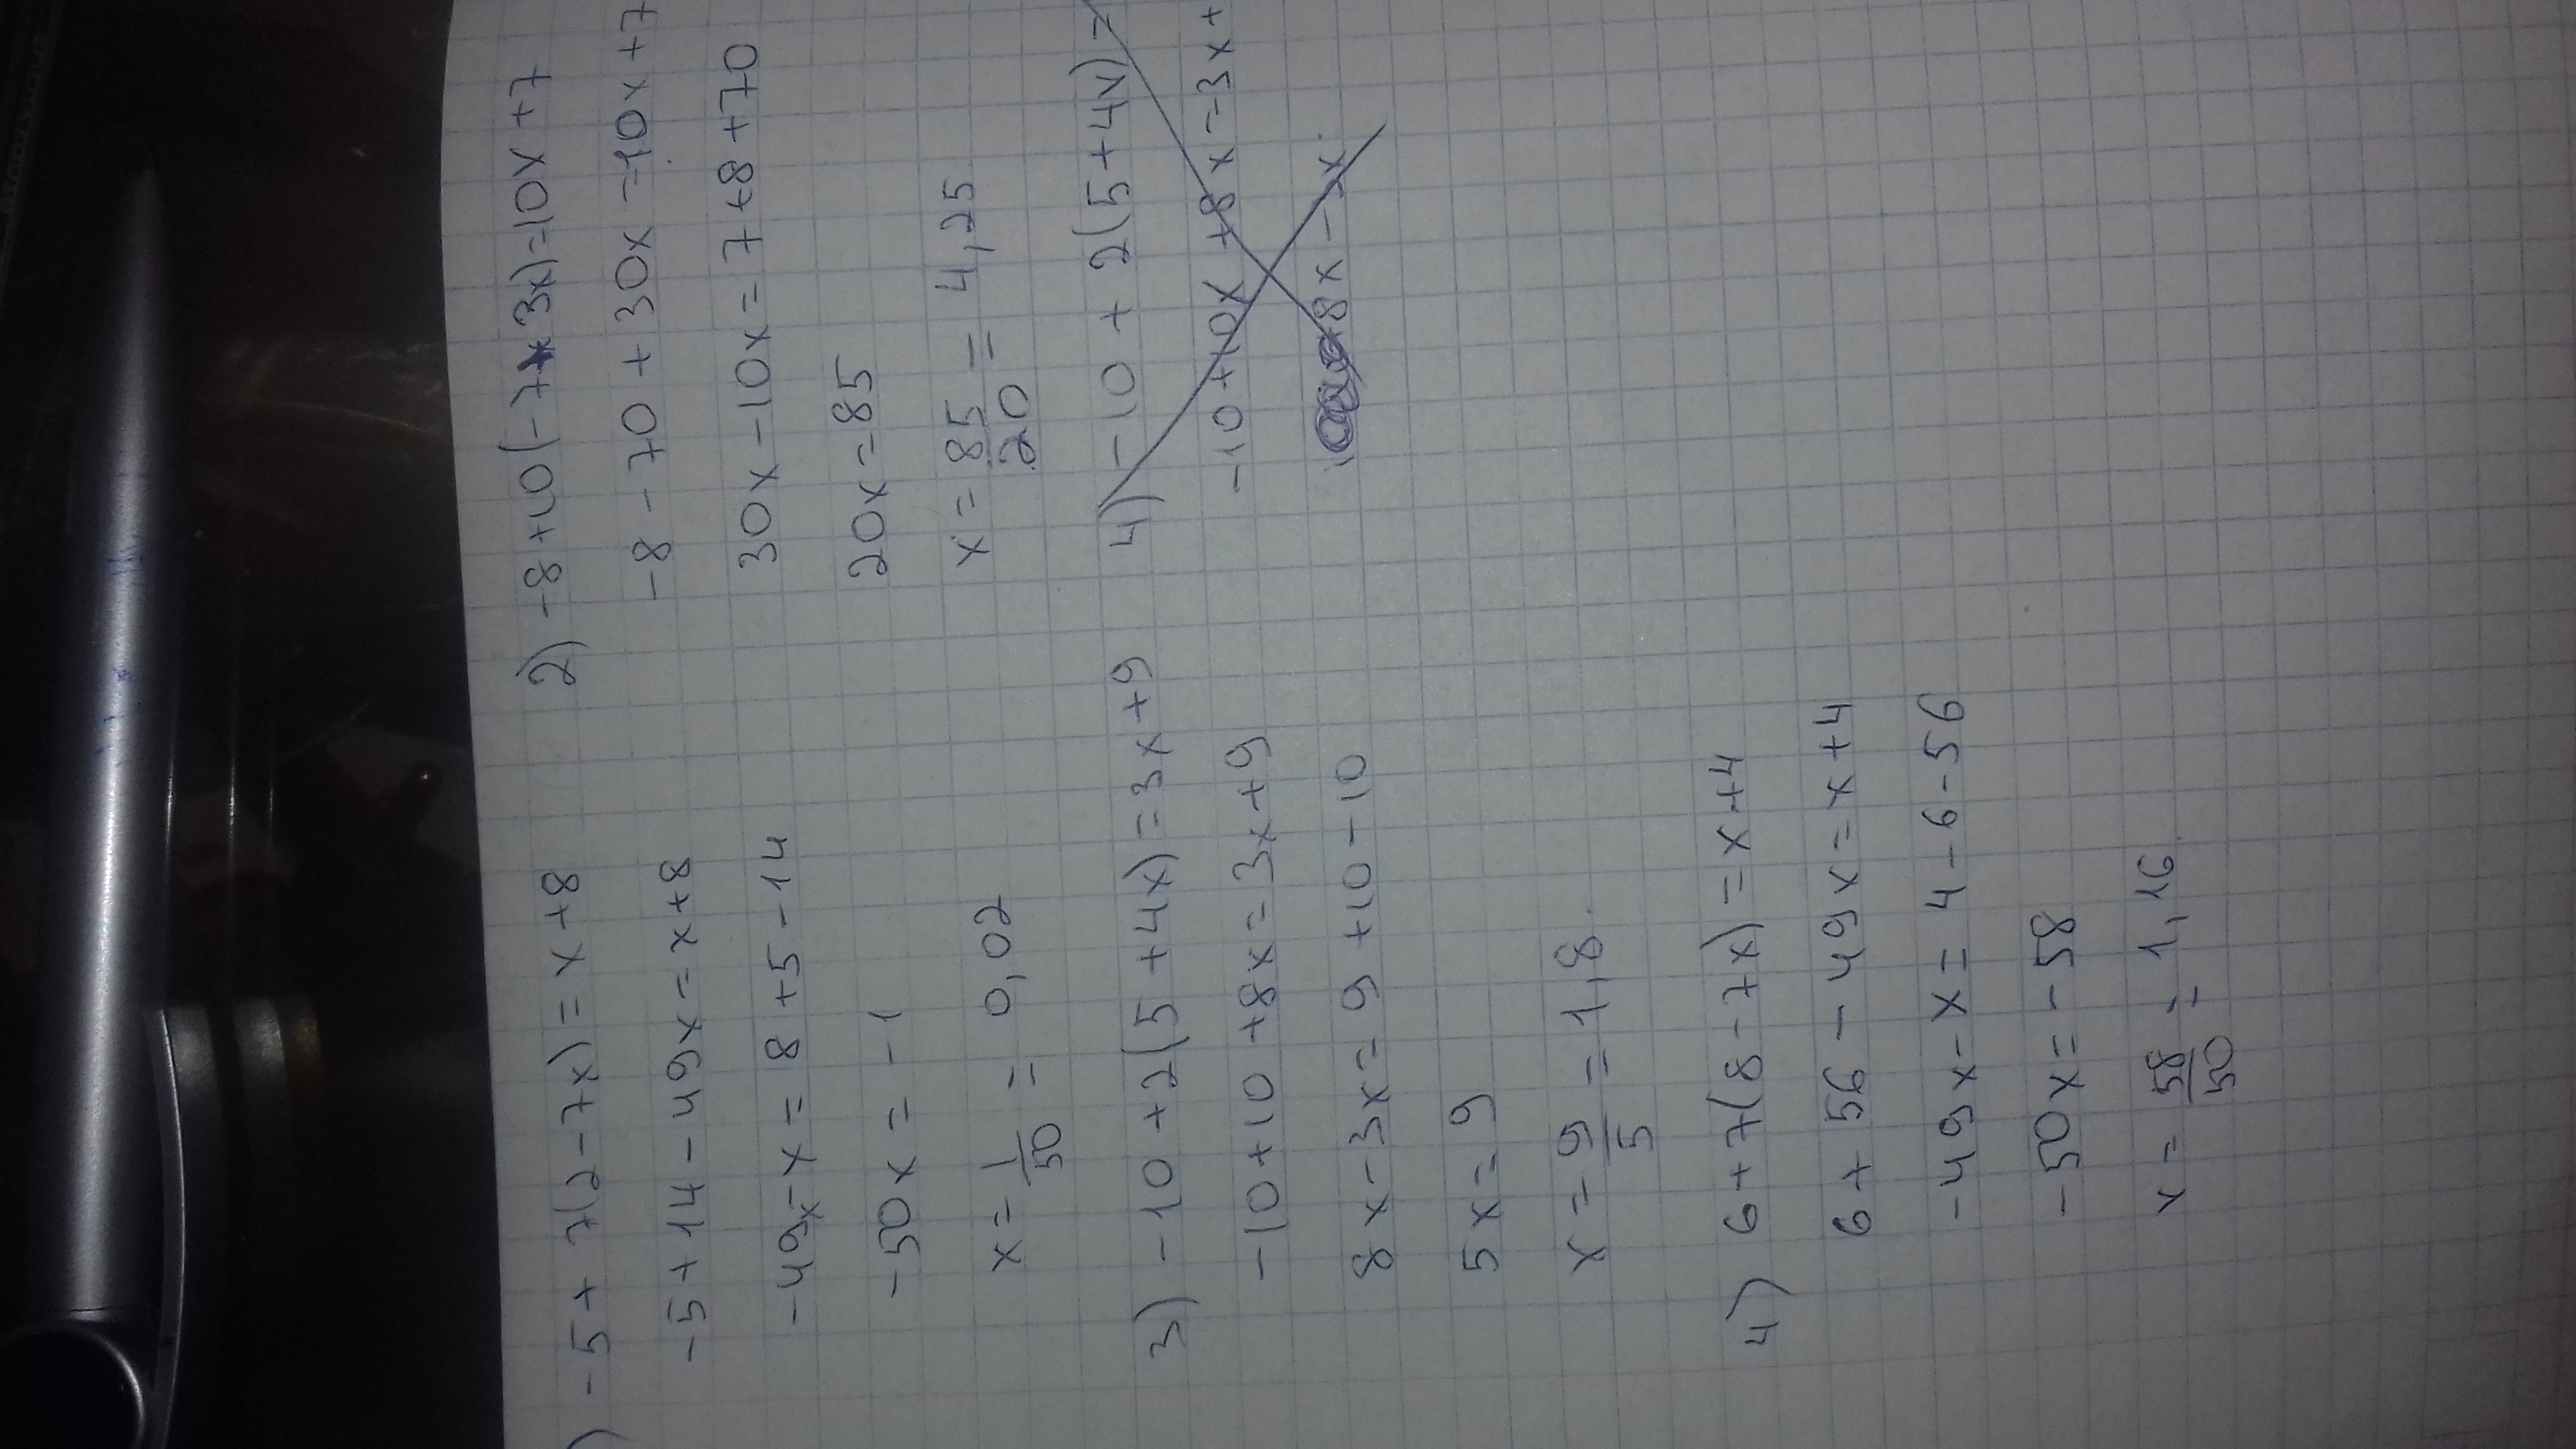 ) -5 + 7(2 - 7x) = x + 8
-5 + 14 - 49x = x + 8
-49x - x = 8 + 5 - 14
-50x = -1
x = 1/50 = 0,02
2) -8 + 10(-7 + 3x) = 10x + 7
-8 - 70 + 30x = 10x + 7
30x - 10x = 7 + 8 + 70
20x = 85
x = 85/20 = 4,25
3) -10 + 2(5 + 4x) = 3x + 9
-10 + 10 + 8x = 3x + 9
8x - 3x = 9 + 10 - 10
5x = 9
x = 9/5 = 1,8.
4) -10 + 2(5 + 4x) =
-10 + 10x + 8x = 3x +
8x - 3x
4) 6 + 7(8 - 7x) = x + 4
6 + 56 - 49x = x + 4
-49x - x = 4 - 6 - 56
-50x = -58
x = 58/50 = 1,16